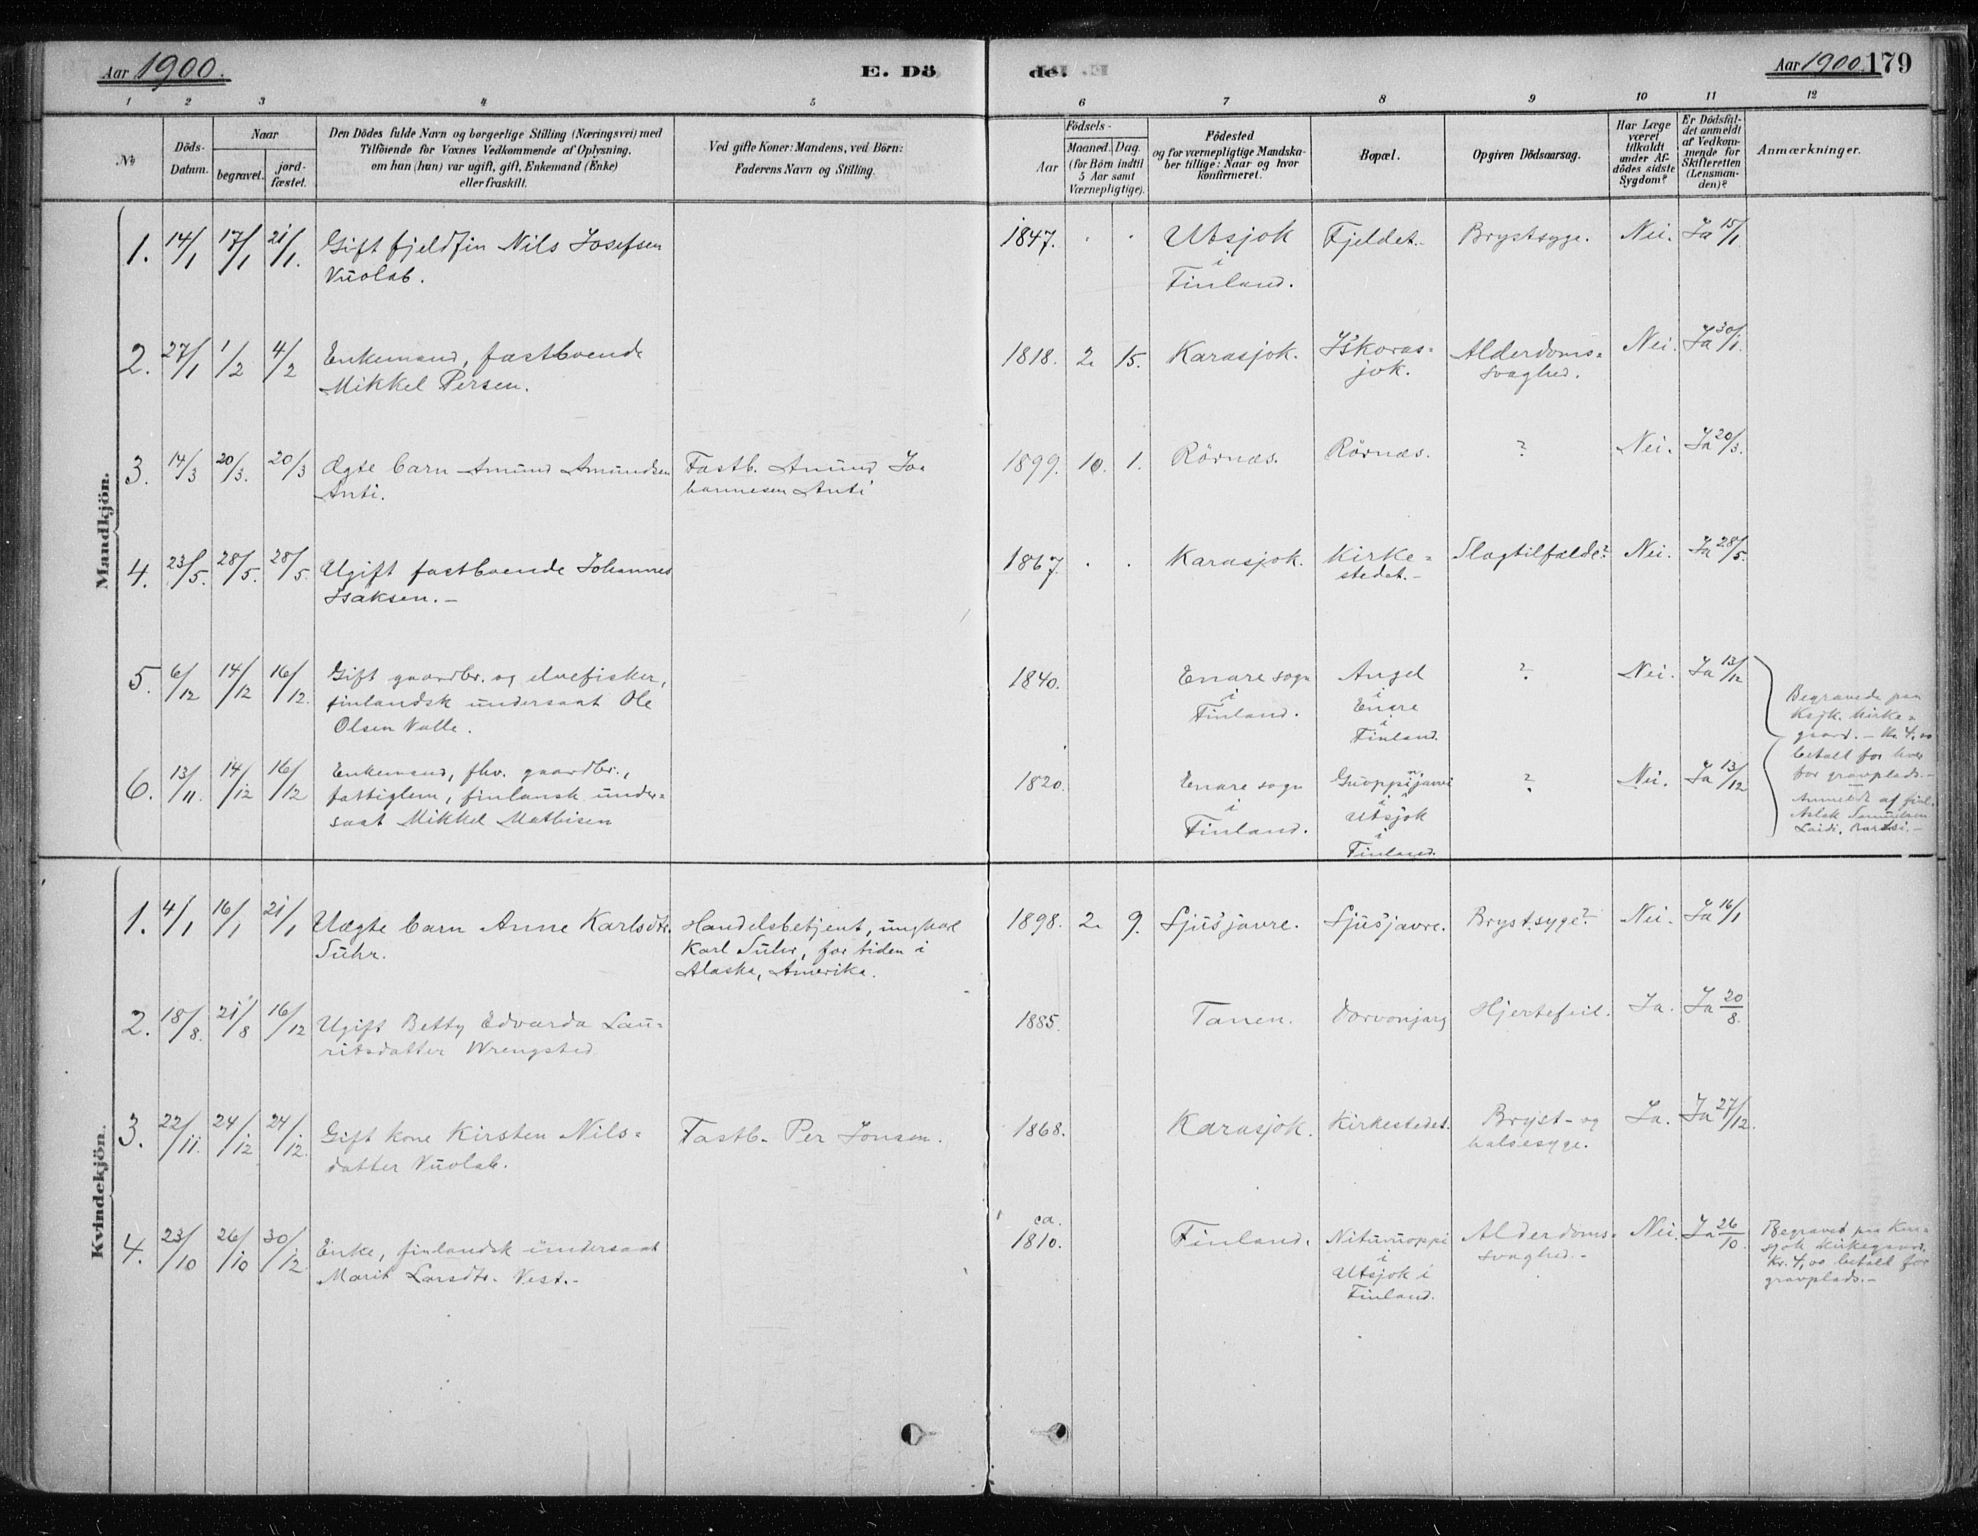 Aar 1900.
E. Döde.
Aar 1900. 179
1 2 3 4 5 6 7 8 9 10 11 12
No
Döds-Datum.
Naar
begravet.
jord-fæstet.
Den Dödes fulde Navn og borgerlige Stilling (Næringsvei) med
Tilföiende for Voxnes Vedkommende af Oplysning.
om han (hun) var ugift, gift, Enkemand (Enke)
eller fraskilt.
Ved gifte Koner: Mandens, ved Börn:
Faderens Navn og Stilling.
Födsels-
Aar
Maaned. Dag.
(for Börn indtil
5 Aar samt
Værnepligtige).
Födested
og for værnepligtige Mandska-
ber tillige: Naar og hvor
konfirmeret.
Bopæl.
Opgiven Dödsaarsag.
Har Læge
været
tilkaldt
under Af-
dödes sidste
Sygdom?
Er Dödsfal-
det anmeldt
af Vedkom-
mende for
Skifteretten
(Lensman-
den)?
Anmærkninger.
Mandkjön.
1. 14/1 17/1 21/1. Gift fjeldfin Nils Josefsen
Vuolab.
1847. Utsjok
i
Finland.
Fjeldet. Brystsyge. Nei. Ja 15/1.
2. 27/1 1/2 4/2 Enkemand, fastboende
Mikkel Persen.
1818. 2. 15. Karasjok. Iskoras=
jok.
Alderdoms=
svaghed.
Nei. Ja 30/1.
3. 14/3 20/3. 20/3 Ægte barn Amund Amundsen
Anti.
Fastb. Amund Jo=
hannesen Anti
1899. 10. 1. Rörnæs. Rörnæs. ? Nei. Ja 20/3.
4. 23/5. 28/5. 28/5. Ugift fastboende Johannes
Isaksen.-
1867. Karasjok. Kirke=
stedet.-
Slagtilfælde? Nei. Ja 28/5.
5. 6/12 14/12 16/12. Gift gaardbr. og elvefisker,
finlandsk undersaat Ole
Olsen Valle.
1840. Enare sogn
i
Finland.
Angel
i
Enare
i
Finland.
? Nei. Ja 13/12
6. 13/11. 14/12 16/12 Enkemand, fhv. gaardbr.,
fattiglem, finlansk under=
saat Mikkel Mathisen
1820. Enare sogn
i
Finland.
Guoppijavri
i
Utsjok
i
Finland.
? Nei. Ja 13/12
Begravede paa
Ksjk. Kirke=
gaard. - Kr. 4,00
betalt for hver
for gravplads.-
Anmeldt af
Aslak Samuelsen
Kvindekjön.
1. 4/1 16/1 21/1 Uægte barn Anne Karlsdtr.
Suhr.
Handelsbetjent, ungkarl
Karl Suhr, for tiden i
Alaska, Amerika.
1898. 2. 9. Sjusjavre. Sjusjavre. Brystsyge? Nei. Ja 16/1
2. 18/8. 21/8 16/12 Ugift Betty Edvarda Lau=
ritsdatter Wrengsted
1885. Tanen. Dorvonjarg Hjertefeil. Ja. Ja 20/8.
3. 22/11. 24/12 24/12. Gift kone Kirsten Nils=
datter Vuolab.
Fastb. Per Jonsen.
1868. Karasjok. Kirkestedet. Bryst- og
halsesyge.
Ja. Ja 27/12.
4. 23/10 26/10 30/12 Enke, finlandsk undersaat
Marit Larsdtr. Vest.-
ca.
1810. Finland. Nituvuoppi
i
Utsjok i
Finland.
Alderdoms=
svaghed.-
Nei. Ja 26/10.
Begravet paa Kara=
sjok Kirkegaard.
Kr. 4,00 betalt for
gravplads.-